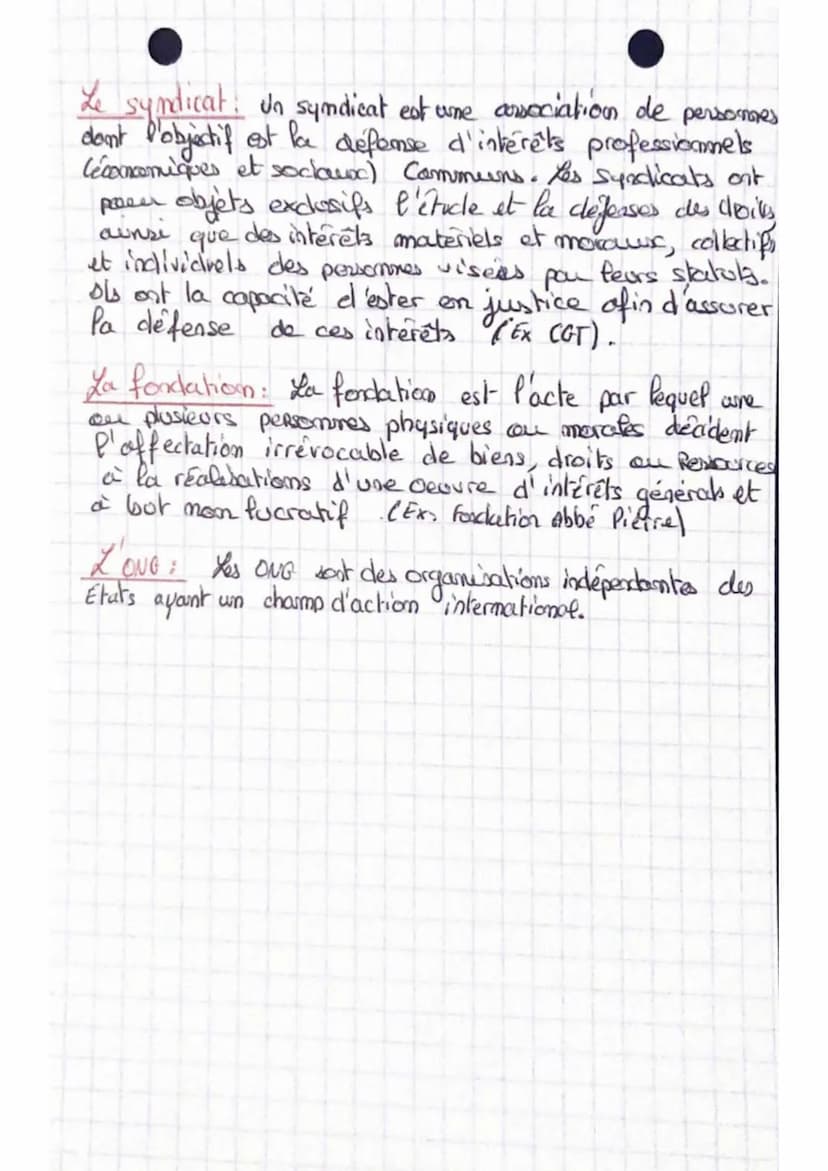 Le syndicat : Un syndicat est une association de personnes
dont l'objectif est la défense d'intérêts professionnels
(économiques et sociaux) Communs. Les Syndicats ont
pour objets exclusifs l'étude et la défenses des droits
ainsi que des intérêts matériels et moraux, collectifs
et individuels des personnes visées par leurs statuts.
Ils ont la capacité d'ester en justice afin d'assurer
la défense de ces intérêts (Ex CGT).
La fondation : La fondation est l'acte par lequel une
ou plusieurs personnes physiques ou morales décident
l'affectation irrévocable de biens, droits ou Ressources
à la réalisations d'une oeuvre d'intérêts générals et
à but non lucratif. (Ex: Fondation Abbé Pierre)
L'ONG : Les ONG sont des organisations indépendantes des
États ayant un champ d'action international.